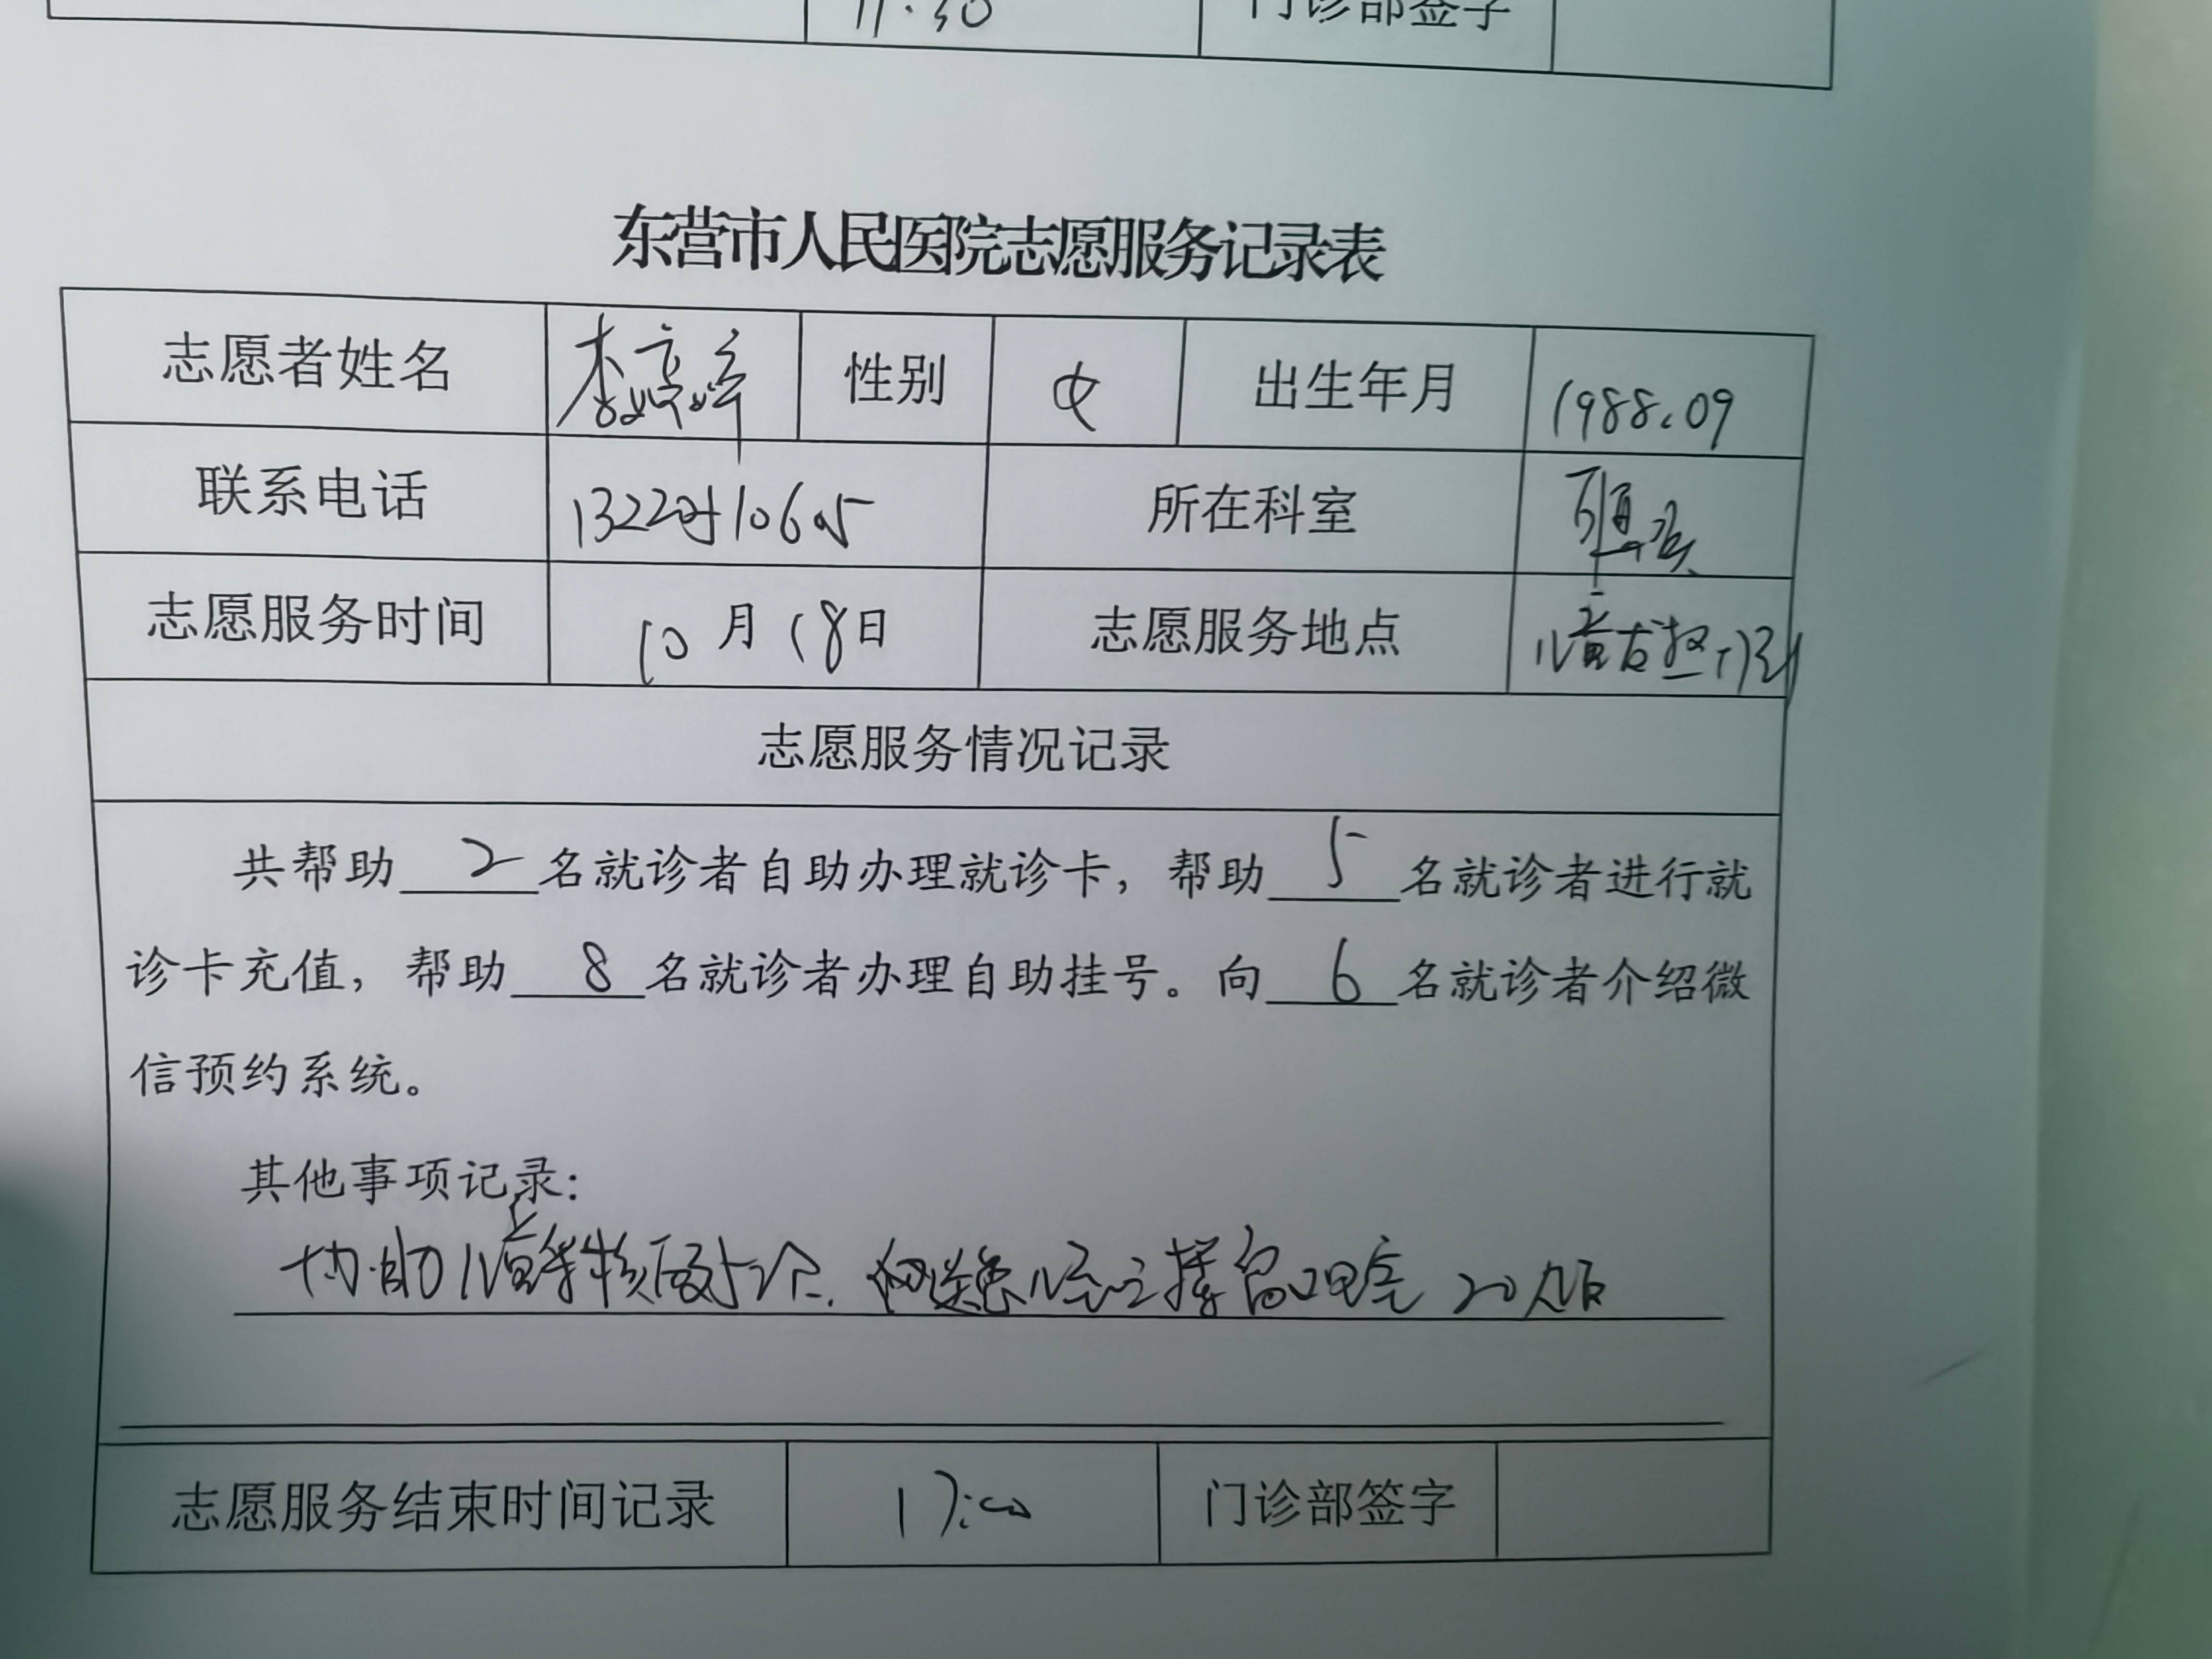 11:30 门诊部签字
东营市人民医院志愿服务记录表
志愿者姓名 李婷婷 性别 女 出生年月 1988.09
联系电话 所在科室
志愿服务时间 10月18日 志愿服务地点
志愿服务情况记录
共帮助 2 名就诊者自助办理就诊卡，帮助 5 名就诊者进行就
诊卡充值，帮助 8 名就诊者办理自助挂号。向 6 名就诊者介绍微
信预约系统。
其他事项记录：
协助
志愿服务结束时间记录 17:00 门诊部签字